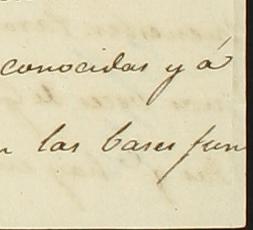 conocidas y á
las bases fun